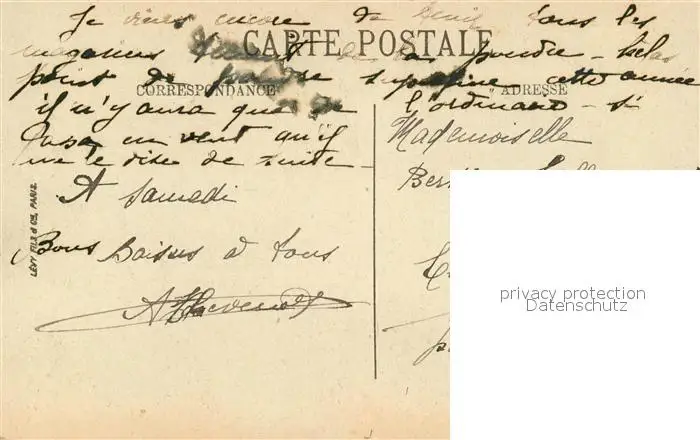 Je viens encore de tous les
CARTE POSTALE
magasins de la poudre – hélas
point de poudre superfine cette année
CORRESPONDANCE
ADRESSE
il n'y aura que de l'ordinaire – si
Casa en veut qu'il
me le dise de suite –
Mademoiselle
A Samedi
Bons baisers à tous
LÉVY FILS & Cie, PARIS.
privacy protection
Datenschutz